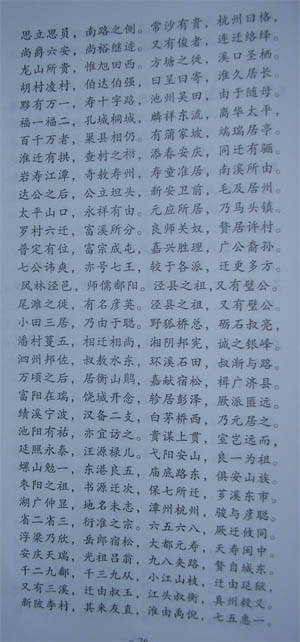 思立思员，南路之侧。常沙有贵，杭州曰格，
尚爵六安，尚裕继迹。又有俊者，连迁络绎。
龙山所贵，惟旭田西。方塘之徒，溪口圣栖。
胡村凌村，伯达伯强，曰呈曰寄，淮久居长。
黟有万一，寿十字路，池州吴田，由于随母。
福一福二，孔城桐城，麟祥东流，离华太平，
百千万者，巢县相仍。有蒲家坡，端瑞居亭。
淮迁有拱，查村之楷，添春安庆，同迁有骊。
岩寿江潭，奇赦寿州，寿童淮居，南溪所由。
达公之后，公立坦头，新安卫前，毛及居州。
太平山口，永祥有由。元应所居，乃马头镇。
罗村六迁，富溪所分。良师吴奴，赘居许村。
普定有位，富宗成屯，嘉兴胜理，广公裔孙。
七公讳爽，亦号七王，较于各派，迁更多方。
凤林泾邑，师儒鄢阳。泾县之祖，又有璧公。
尾滩之徙，有名彦英。泾县之祖，又有璧公。
小田三居，乃由于聪。野狐桥总，砺石叔亮，
潘村蔓五，相迁相尚，湘阴邦宪，诚之银峰。
泗州邦佐，叔教水东，环溪石田，叔渐与路。
万顷之后，居衡山鹍，嘉猷宿松，楫广济县。
富阳在瑞，饶城开念，轸居彭泽，厥派匪远。
绩溪宁波，汉备二支，白茅桥西，乃元居之。
池阳有祐，亦宜访之。贵谋上贯，室岂远而，
延照永泰，汪源禄儿。弋阳安山，良一为祖。
螺山勉一，东港良五，庙底路东，俱安山族。
枣阳之祖，书源迁次，保七所迁，芗溪东市。
湖广仲显，地名未志，漳州杭州，骏与彦聪。
省二省三，衍淮之宗。六五六八，厥迁攸同。
浮梁乃欣，岳郎宿松，大都元寿，天寿闽中。
安庆天瑞，光祖吕翁，九八夹路，赘自城东。
千二九郡，千三九从，小江山枝，迁由延狱，
又有三溪，迁由叔玉，江头叔衡，真州毅义。
新陂李村，其来友直，淮由禹倪，七五惠一。